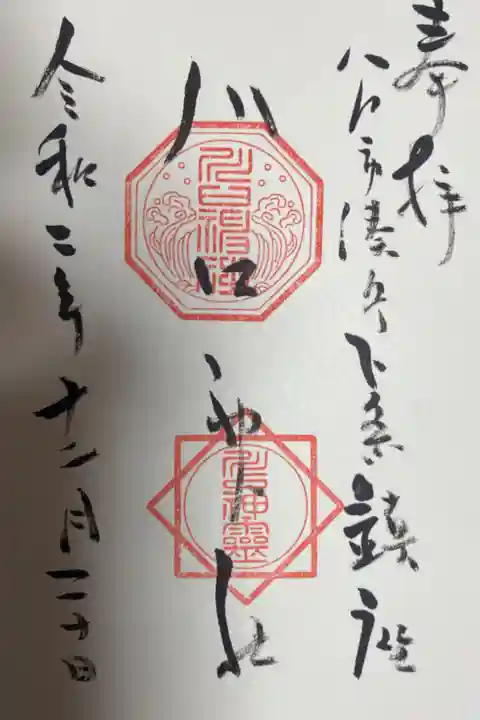 奉拝
八戸市湊町下条鎮座
川口神社
令和二年十二月二十日
水神靈